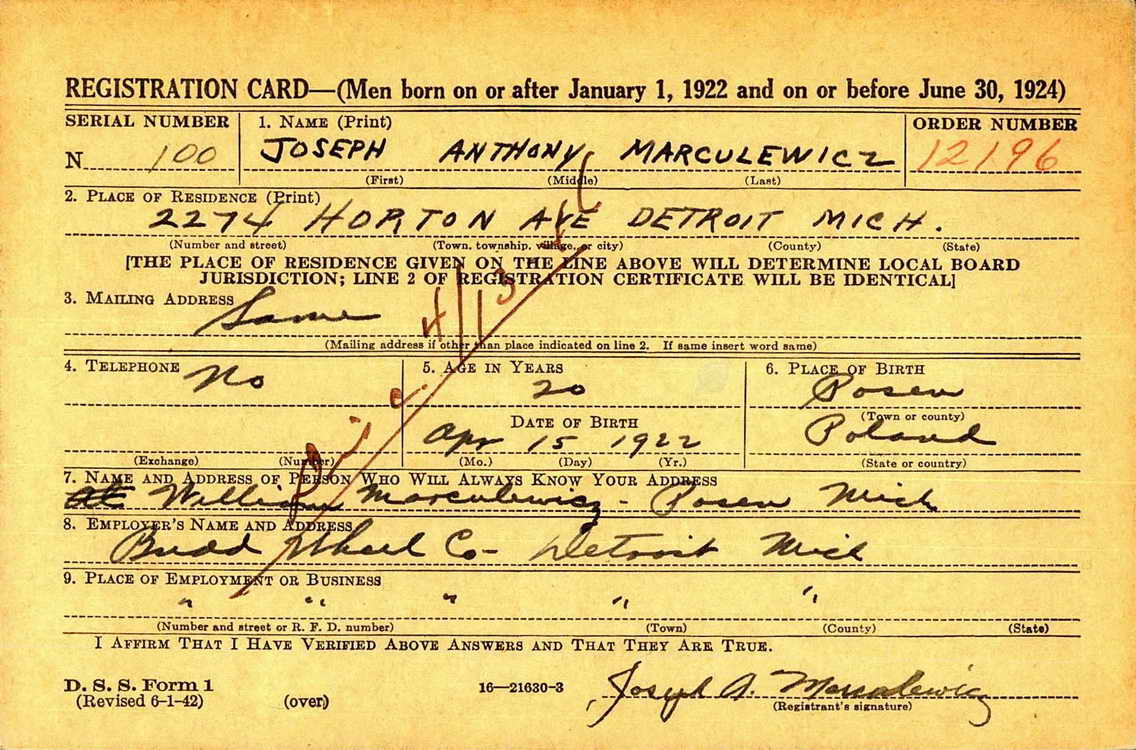 REGISTRATION CARD—(Men born on or after January 1, 1922 and on or before June 30, 1924)
SERIAL NUMBER 1. NAME (Print) ORDER NUMBER
N 100 JOSEPH ANTHONY MARCULEWICZ 12196
(First) (Middle) (Last)
2. PLACE OF RESIDENCE (Print)
2274 HORTON AVE DETROIT MICH.
(Number and street) (Town, township, village, or city) (County) (State)
[THE PLACE OF RESIDENCE GIVEN ON THE LINE ABOVE WILL DETERMINE LOCAL BOARD
JURISDICTION; LINE 2 OF REGISTRATION CERTIFICATE WILL BE IDENTICAL]
3. MAILING ADDRESS
Same
(Mailing address if other than place indicated on line 2. If same insert word same)
4. TELEPHONE 5. AGE IN YEARS 6. PLACE OF BIRTH
No 20 Posen
DATE OF BIRTH (Town or county)
Apr 15 1922 Poland
(Exchange) (Number) (Mo.) (Day) (Yr.) (State or country)
7. NAME AND ADDRESS OF PERSON WHO WILL ALWAYS KNOW YOUR ADDRESS
William Marculewicz - Posen Mich
8. EMPLOYER'S NAME AND ADDRESS
Budd Wheel Co- Detroit Mich
9. PLACE OF EMPLOYMENT OR BUSINESS
" " " " "
(Number and street or R. F. D. number) (Town) (County) (State)
I AFFIRM THAT I HAVE VERIFIED ABOVE ANSWERS AND THAT THEY ARE TRUE.
D. S. S. Form 1 16—21630-3 Joseph A. Marculewicz
(Revised 6-1-42) (over) (Registrant's signature)